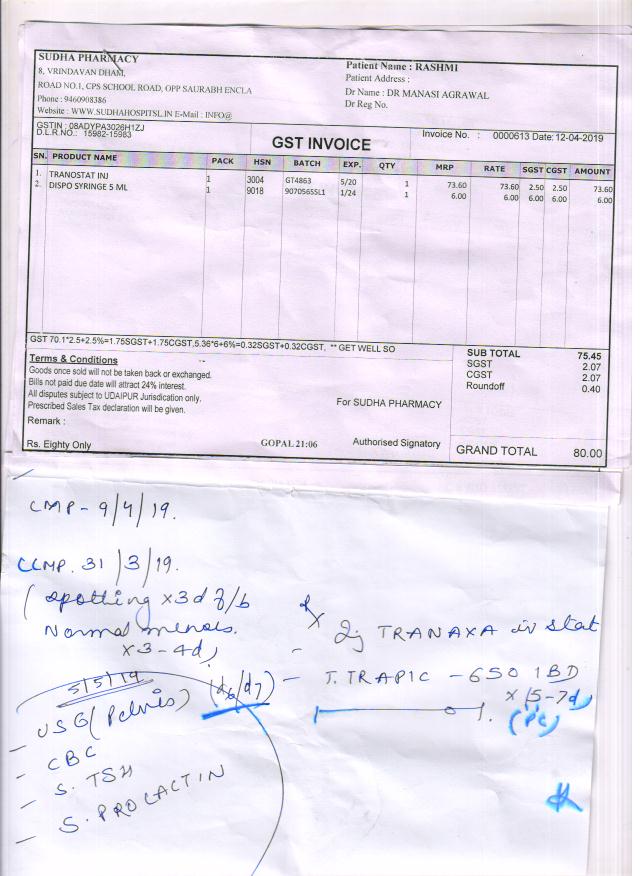 SUDHA PHARMACY
8, VRINDAVAN DHAM,
ROAD NO.1, CPS SCHOOL ROAD, OPP SAURABH ENCLA
Phone : 9460908386
Website : WWW.SUDHAHOSPITSL.IN E-Mail : INFO@
GSTIN : 08ADYPA3026H1ZJ
D.L.R.NO.: 15982-15983
Patient Name : RASHMI
Patient Address :
Dr Name : DR MANASI AGRAWAL
Dr Reg No.
GST INVOICE
Invoice No. : 0000613 Date: 12-04-2019
SN. PRODUCT NAME PACK HSN BATCH EXP. QTY MRP RATE SGST CGST AMOUNT
1. TRANOSTAT INJ 1 3004 GT4863 5/20 1 73.60 73.60 2.50 2.50 73.60
2. DISPO SYRINGE 5 ML 1 9018 907056S5L1 1/24 1 6.00 6.00 6.00 6.00 6.00
GST 70.1*2.5+2.5%=1.75SGST+1.75CGST,5.36*6+6%=0.32SGST+0.32CGST, ** GET WELL SO
Terms & Conditions
Goods once sold will not be taken back or exchanged.
Bills not paid due date will attract 24% interest.
All disputes subject to UDAIPUR Jurisdication only.
Prescribed Sales Tax declaration will be given.
Remark :
For SUDHA PHARMACY
Rs. Eighty Only GOPAL 21:06 Authorised Signatory
SUB TOTAL 75.45
SGST 2.07
CGST 2.07
Roundoff 0.40
GRAND TOTAL 80.00
CMP - 9/4/19.
CCMP. 31/3/19.
( spotting x3d f/b
Normal menses.
x3-4d
Inj TRANAXA iv stat
- T. TRAPIC - 650 1BD
x 5-7d
(PC)
5/5/19
- USG (Pelvis) (d6/d7)
- CBC
- S. TSH
- S. PROLACTIN